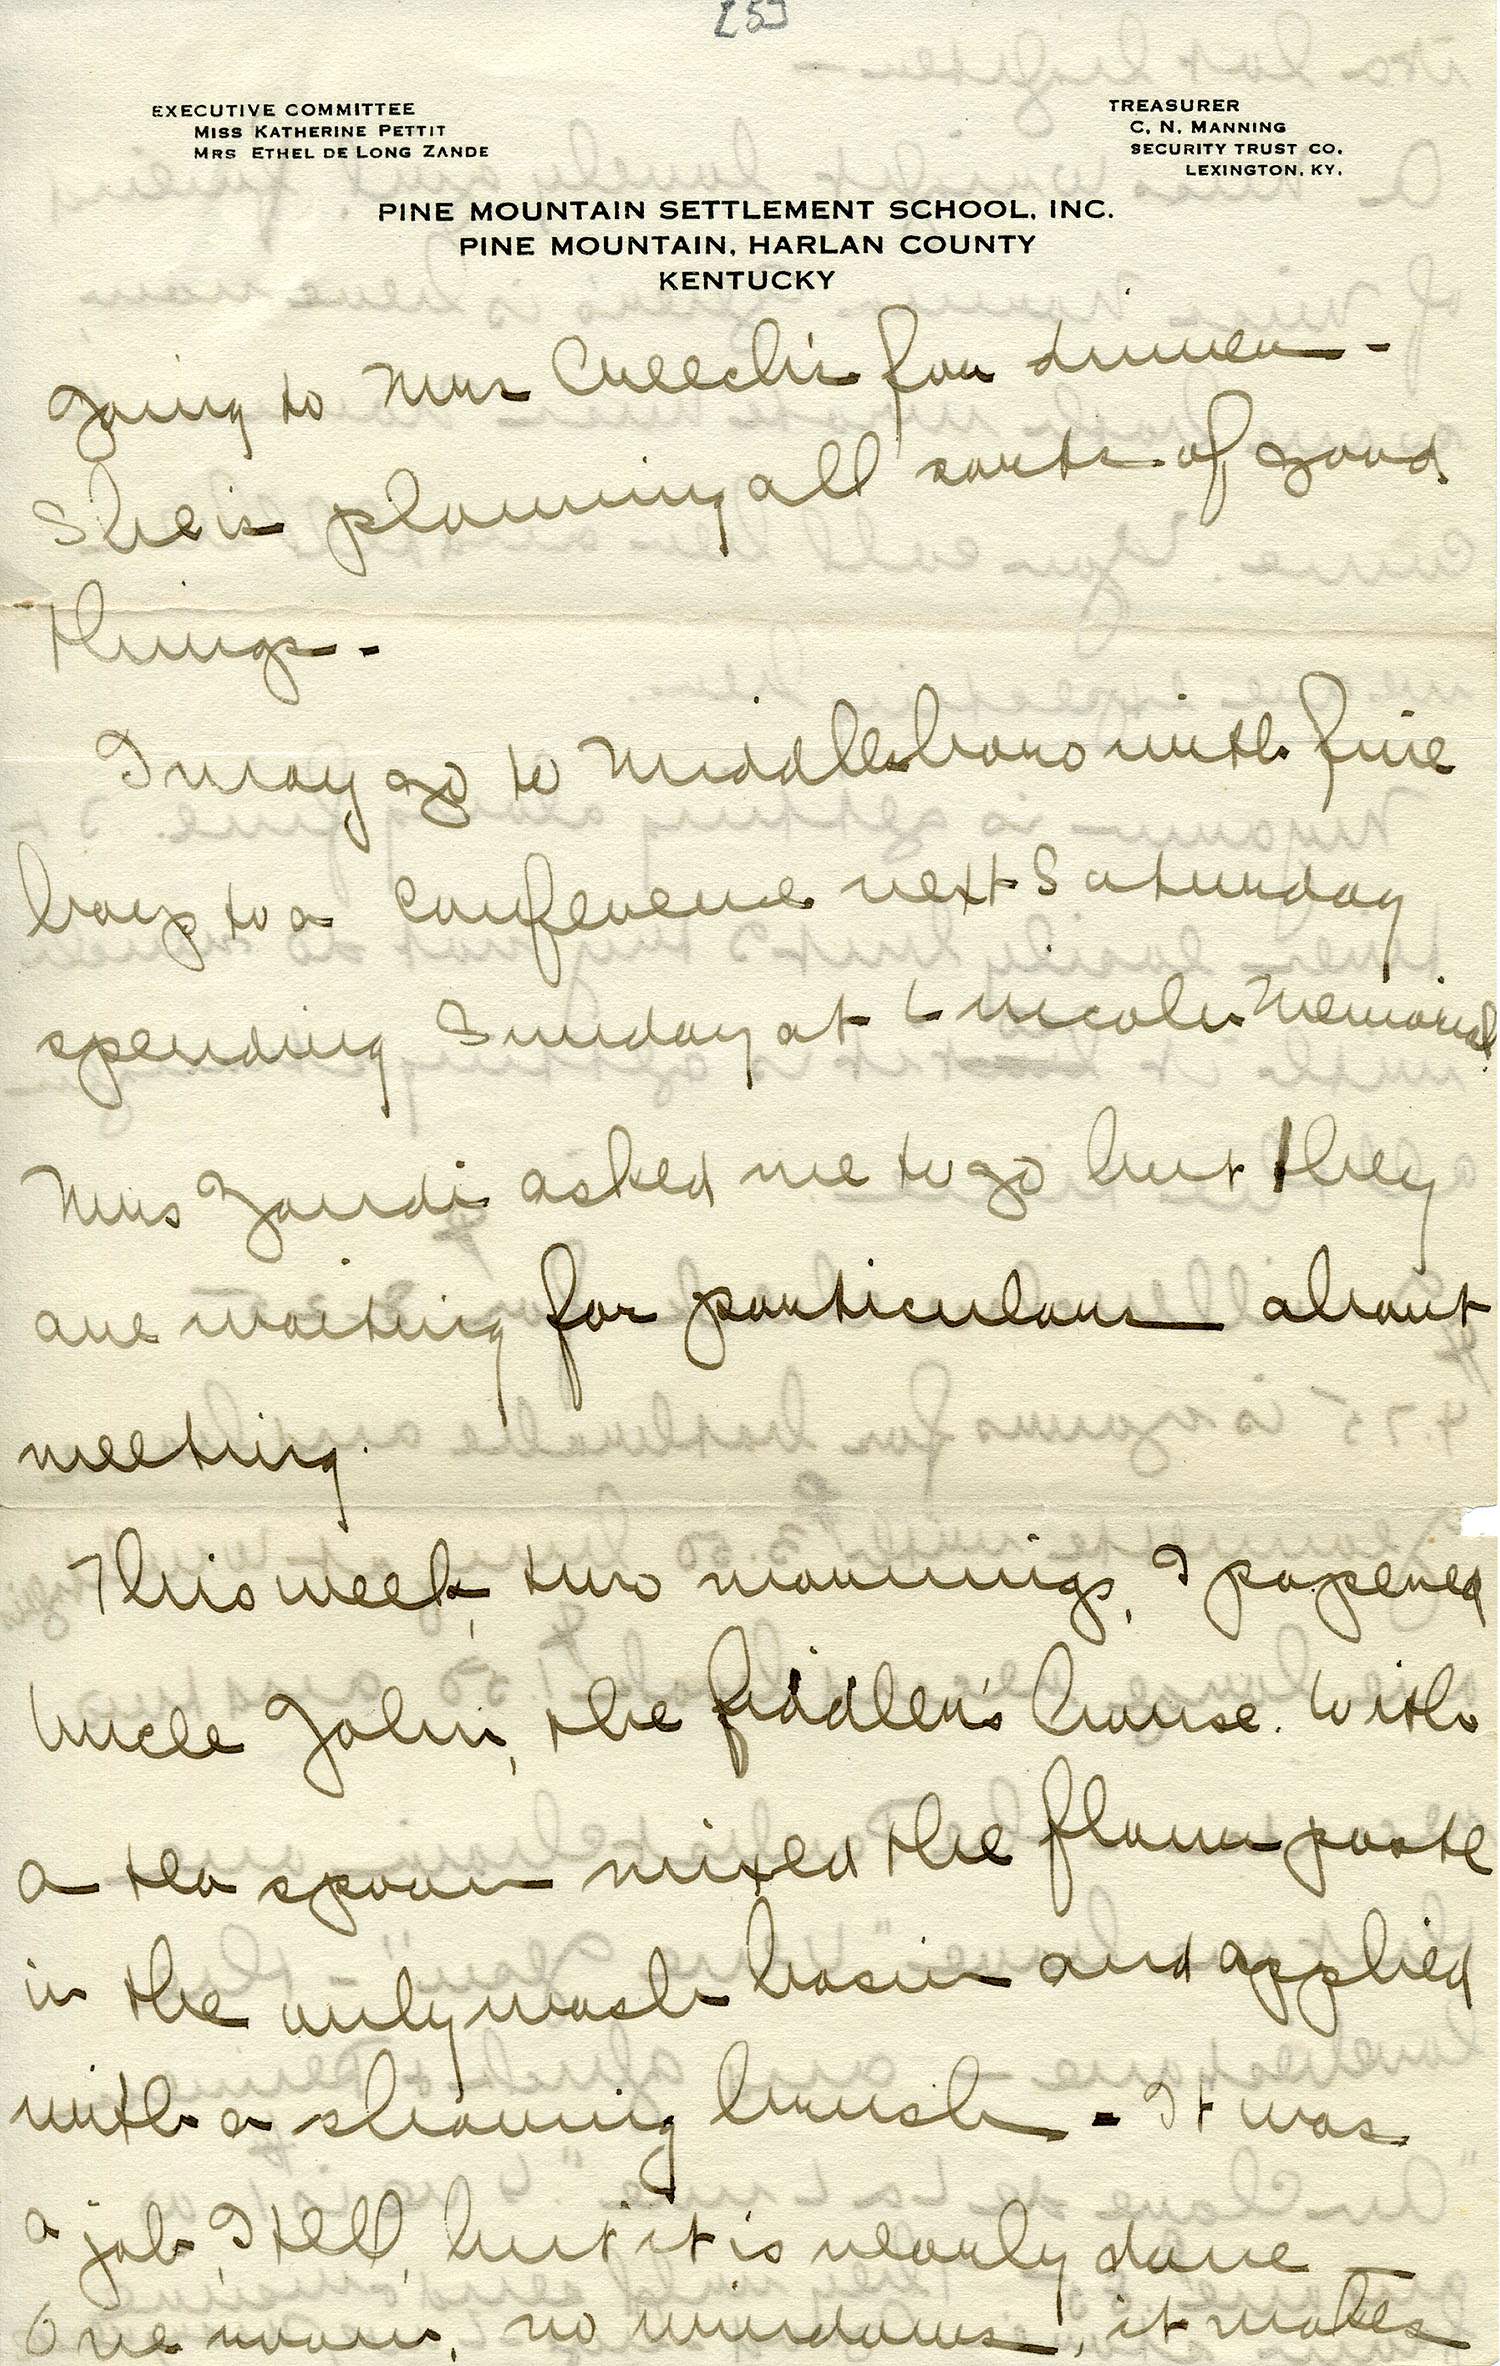 [59]
EXECUTIVE COMMITTEE
MISS KATHERINE PETTIT
MRS ETHEL DE LONG ZANDE
TREASURER
C. N. MANNING
SECURITY TRUST CO.
LEXINGTON, KY.
PINE MOUNTAIN SETTLEMENT SCHOOL, INC.
PINE MOUNTAIN, HARLAN COUNTY
KENTUCKY
going to Mrs Creech's for dinner -
She is planning all sorts of good
things -
I may go to Middlesboro with five
boys to a conference next Saturday
spending Sunday at Lincoln Memorial.
Mrs Zandi asked me to go but they
are waiting for particulars about
meeting.
This week, two mornings, I papered
Uncle John, the fiddler's house. With
a tea spoon mixed the flour paste
in the only wash basin and applied
with a shaving brush - It was
a job, I tell, but it is nearly done —
One room, no windows, it makes